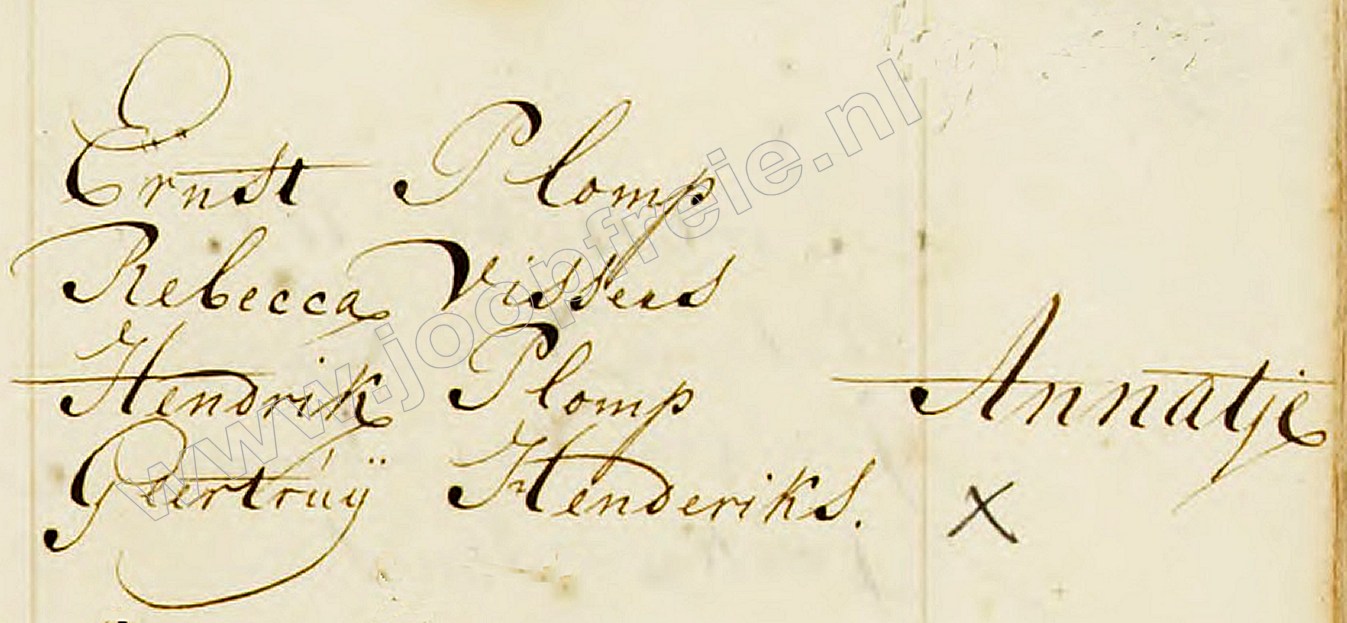 Ernst Plomp
Rebecca Vissers
Hendrik Plomp
Annatje
Geertrúÿ Henderiks.
X
www.joopfreie.nl